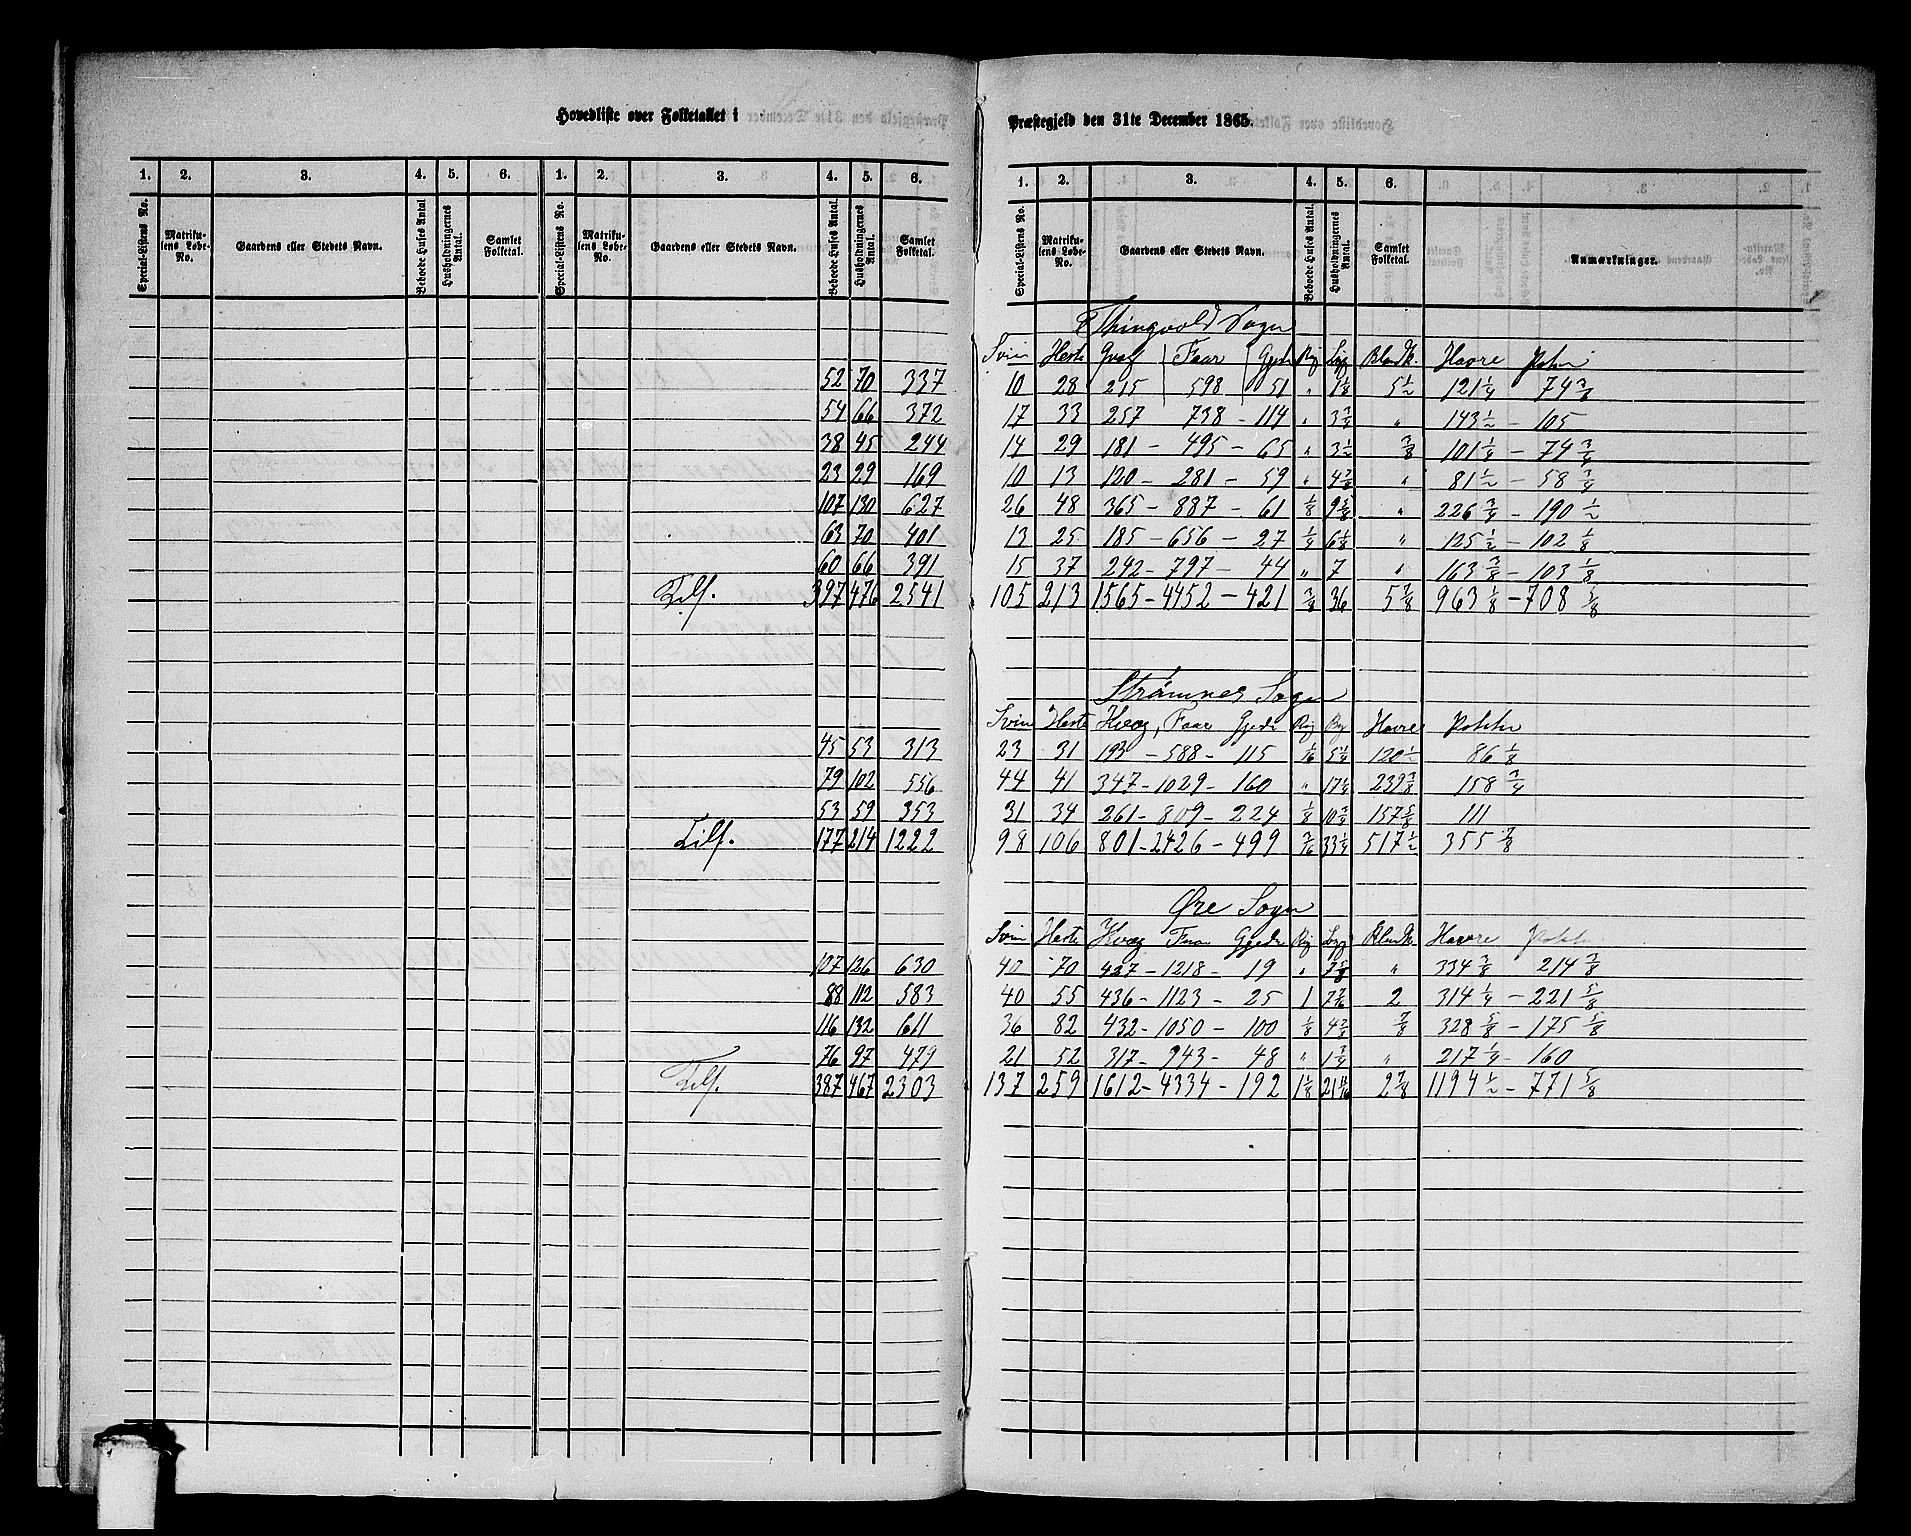 Hovedliste over Folketallet i
Præstegjeld den 31te December 1865.
1. 2. 3. 4. 5. 6. 1. 2. 3. 4. 5. 6.
Special-Listens No. Matrikulens Løbe-No. Gaardens eller Stedets Navn. Beboede Huses Antal Husholdningernes Antal. Samlet Folketal. Special-Listens No. Matrikulens Løbe-No. Gaardens eller Stedets Navn. Beboede Huses Antal. Husholdningernes Antal. Samlet Folketal.
52 70 337
54 66 372
38 45 244
23 29 169
107 130 627
63 70 401
60 66 391
Tils. 397 476 2541
45 53 313
79 102 556
53 59 353
Tils. 177 214 1222
107 126 630
88 112 583
116 132 611
76 97 479
Tils. 387 467 2303
1. 2. 3. 4. 5. 6.
Special-Listens No. Matrikulens Løbe-No. Gaardens eller Stedets Navn. Beboede Huses Antal. Husholdningernes Antal. Samlet Folketal. Anmærkninger.
Thingvold Sogn
Sviin Heste Qvæg Faar Gjeder Rug Byg Bland K. Havre Poteter
10 28 215 598 51 " 1 1/8 5 1/2 121 1/4 74 3/8
17 33 257 738 - 114 " 3 3/4 " 143 1/2 - 105
14 29 181 - 495 - 65 " 3 1/2 3/8 101 1/4 - 74 3/4
10 13 120 - 281 - 59 " 4 3/8 " 81 1/2 - 58 3/4
26 48 365 - 887 - 61 1/8 9 5/8 " 226 3/4 - 190 1/2
13 25 185 - 656 - 27 1/4 6 1/8 " 125 1/2 - 102 1/8
15 37 242 - 797 - 44 " 7 " 163 3/8 - 103 1/8
105 213 1565 - 4452 - 421 3/8 36 5 7/8 963 1/8 - 708 5/8
Strømnes Sogn
Sviin Heste Kvæg, Faar Gjeder Rug Byg Havre Poteter
23 31 193 - 588 - 115 1/16 5 1/4 120 1/2 86 1/8
44 41 347 - 1029 - 160 " 17 1/4 239 3/8 158 3/4
31 34 261 - 809 - 224 1/8 10 3/4 157 5/8 111
98 106 801 - 2426 - 499 3/16 33 1/4 517 1/2 355 7/8
Øre Sogn
Sviin Heste Kvæg Faar Gjeder Rug Byg Bland K. Havre Poteter
40 70 427 - 1218 - 19 " 7 5/8 " 334 3/8 214 3/8
40 55 436 - 1123 - 25 1 7 7/16 2 314 1/4 - 221 5/8
36 82 432 - 1050 - 100 1/8 4 3/4 7/8 328 5/8 - 175 5/8
21 52 317 - 943 - 48 " 1 3/4 " 217 1/4 - 160
137 259 1612 - 4334 - 192 1 1/8 21 2 7/8 1194 1/2 - 771 5/8